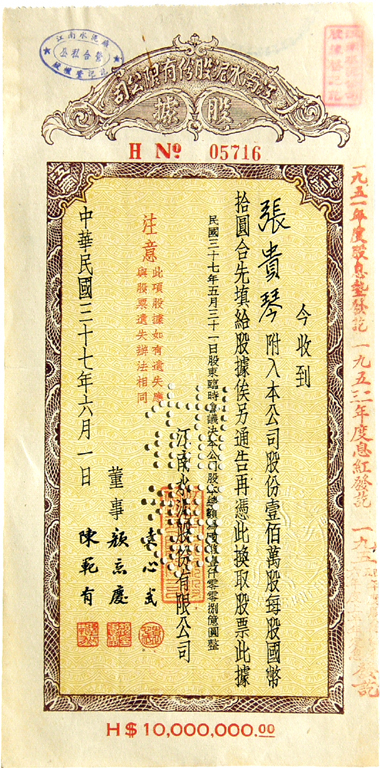 江南水泥股份有限公司
股據
H No 05716
今收到
張貴琴附入本公司股份壹佰萬股每股國幣
拾圓合先填給股據俟另通告再憑此換取股票此據
民國三十七年五月三十一日股東臨時會議決本公司股
江南水泥股份有限公司
董事
袁心武
顏惠慶
陳範有
注意
此項股據如有遺失應
與股票遺失辦法相同
中華民國三十七年六月一日
H$10,000,000.00
一九五一年度股息墊發訖
一九五二年度息紅發訖
江南水泥廠
公私合營
股權登記訖